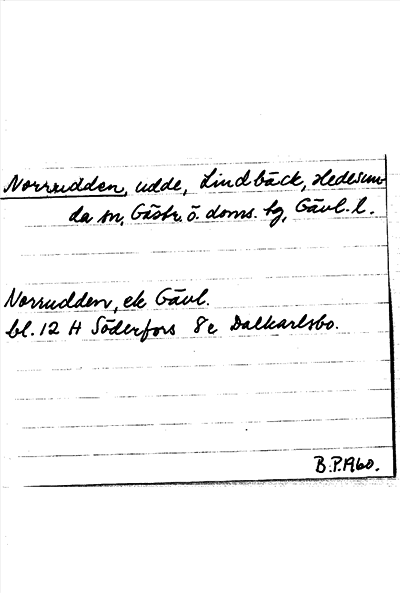 Norrudden, udde, Lindbäck, Hedesun-
da sn, Gästr. ö. doms. tg, Gävl. l.
Norrudden, ek Gävl.
bl. 12 H Söderfors 8e Dalkarlsbo.
B.P.1960.